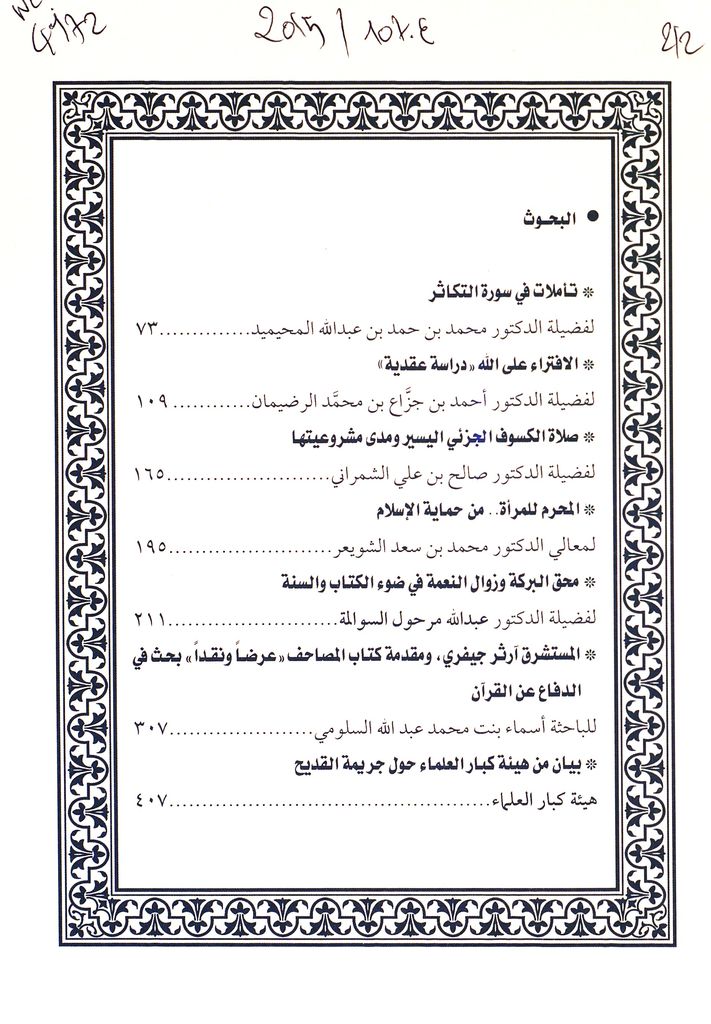 2015 / 107.ع
2/2
● البحوث
* تأملات في سورة التكاثر
لفضيلة الدكتور محمد بن حمد بن عبدالله المحيميد..............٧٣
* الافتراء على الله «دراسة عقدية»
لفضيلة الدكتور أحمد بن جزَّاع بن محمَّد الرضيمان............١٠٩
* صلاة الكسوف الجزئي اليسير ومدى مشروعيتها
لفضيلة الدكتور صالح بن علي الشمراني..........................١٦٥
* المحرم للمرأة.. من حماية الإسلام
لمعالي الدكتور محمد بن سعد الشويعر..........................١٩٥
* محق البركة وزوال النعمة في ضوء الكتاب والسنة
لفضيلة الدكتور عبدالله مرحول السوالمة..........................٢١١
* المستشرق آرثر جيفري، ومقدمة كتاب المصاحف «عرضاً ونقداً» بحث في
الدفاع عن القرآن
للباحثة أسماء بنت محمد عبد الله السلومي......................٣٠٧
* بيان من هيئة كبار العلماء حول جريمة القديح
هيئة كبار العلماء..................................................٤٠٧